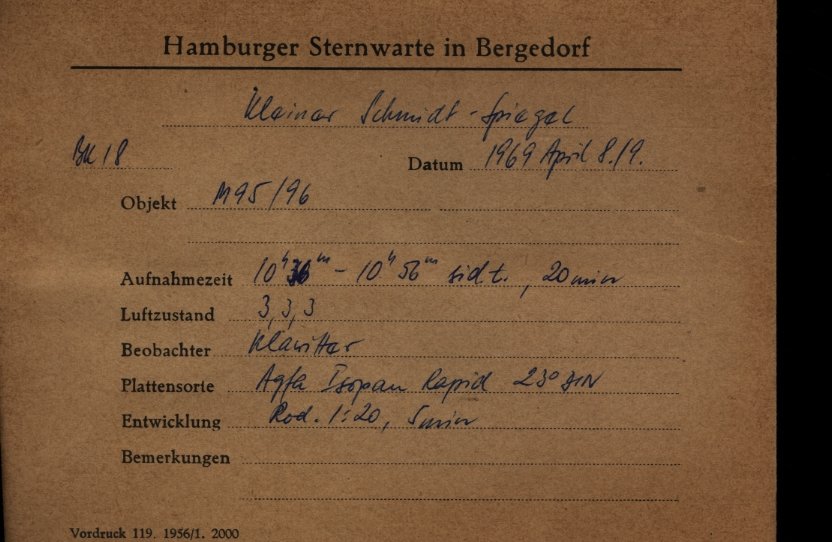 Hamburger Sternwarte in Bergedorf
Kleiner Schmidt-Spiegel
BK 18 Datum 1969 April 8./9.
Objekt M95/96
Aufnahmezeit 10h 36m - 10h 56m sid.t., 20 min
Luftzustand 3, 3, 3
Beobachter Klawitter
Plattensorte Agfa Isopan Rapid 23° DIN
Entwicklung Rod. 1:20, 5 min
Bemerkungen
Vordruck 119. 1956/1. 2000